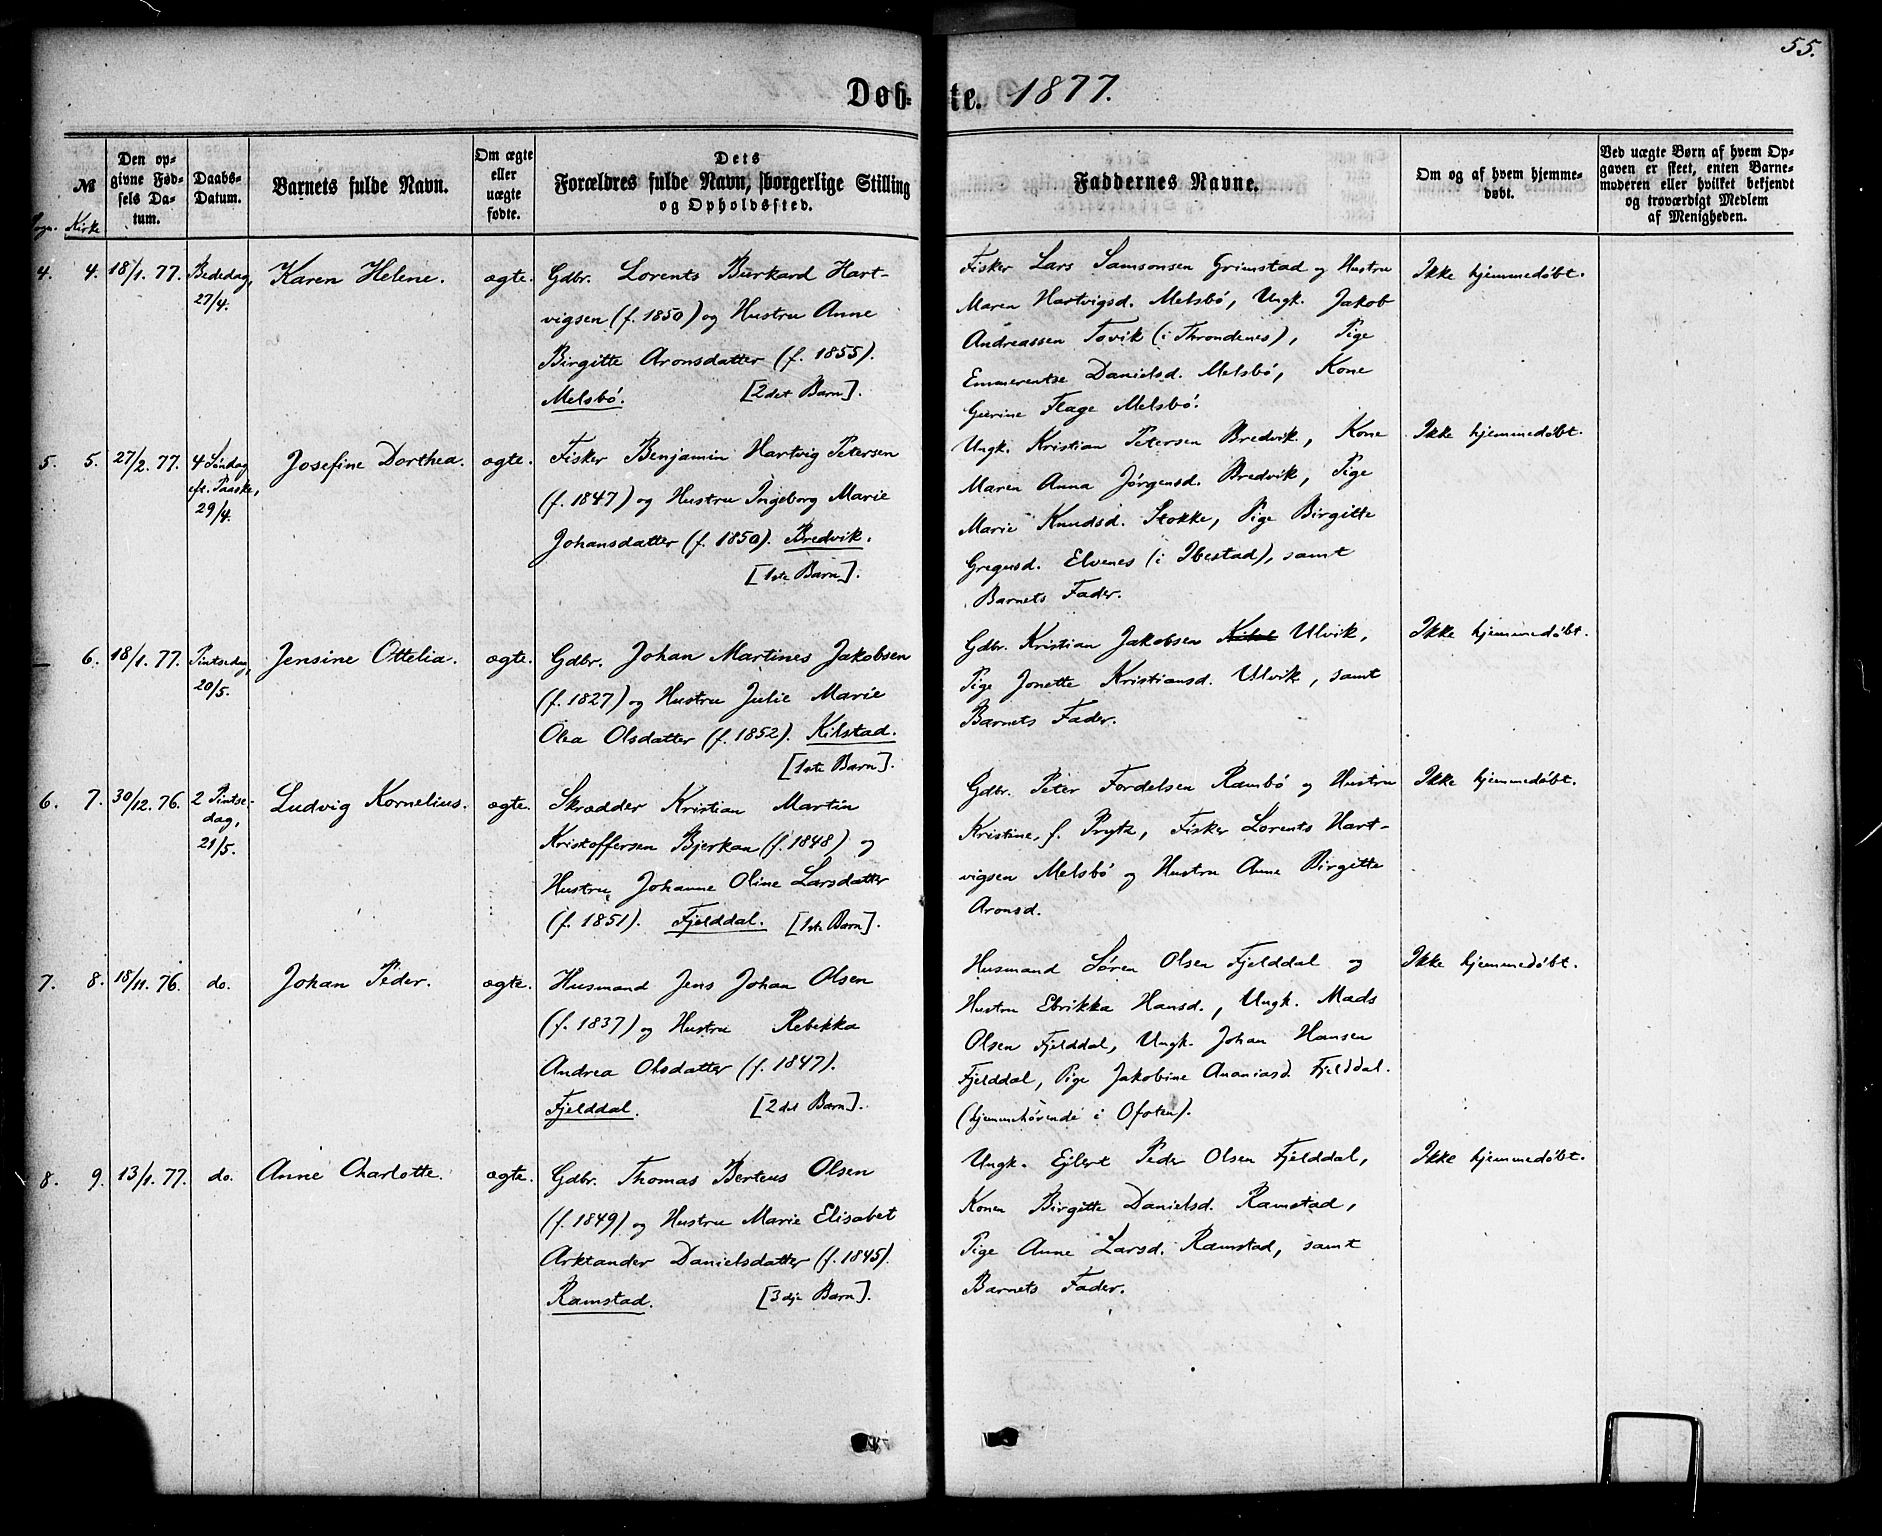 55.
Døbte. 1877.
№
Sogn. Kirke
Den opgivne Fødsels Datum.
Daabs-Datum.
Barnets fulde Navn.
Om ægte eller uægte fødte.
Dets Forældres fulde Navn, borgerlige Stilling og Opholdssted.
Faddernes Navne.
Om og af hvem hjemmedøbt.
Ved uægte Børn af hvem Opgaven er skeet, enten Barnemoderen eller hvilket bekjendt og troværdigt Medlem af Menigheden.
4. 4. 18/1. 77. Bededag, 27/4. Karen Helene. ægte.
Gdbr. Lorents Burkard Hart-
vigsen (f. 1850) og Hustru Anne
Birgitte Aronsdatter (f. 1855).
Melsbö. [2det Barn].
Fisker Lars Samsonsen Grimstad og Hustru
Maren Hartvigsd. Melsbö, Ungk. Jakob
Andreassen Tovik (i Throndenes), Pige
Emmerentse Danielsd. Melsbö, Kone
Gurine Flage Melsbö.
Ikke hjemmedøbt.
5. 5. 27/2. 77. 4 Söndag eft. Paaske, 29/4. Josefine Dorthea. ægte.
Fisker Benjamin Hartvig Petersen
(f. 1847) og Hustru Ingeborg Marie
Johansdatter (f. 1850). Bredvik.
[1ste Barn].
Ungk. Kristian Petersen Bredvik, Kone
Maren Anna Jörgensd. Bredvik, Pige
Marie Knudsd. Stokke, Pige Birgitte
Gregusd. Elvenes (i Ibestad), samt
Barnets Fader.
Ikke hjemmedøbt.
— 6. 18/1. 77. Pintsedag, 20/5. Jensine Ottelia. ægte.
Gdbr. Johan Martines Jakobsen
(f. 1827) og Hustru Julie Marie
Olea Olsdatter (f. 1852). Kilstad.
[1ste Barn].
Gdbr. Kristian Jakobsen Ulvik,
Pige Jonette Kristiansd. Ulvik, samt
Barnets Fader.
Ikke hjemmedøbt.
6. 7. 30/12. 76. 2 Pintse-dag, 21/5. Ludvig Kornelius. ægte.
Skrædder Kristian Martin
Kristoffersen Bjerkan (f. 1848) og
Hustru Johanne Oline Larsdatter
(f. 1851). Fjelddal. [1ste Barn].
Gdbr. Peter Fordelsen Rambö og Hustru
Kristine, f. Prytz, Fisker Lorents Hart-
vigsen Melsbö og Hustru Anne Birgitte
Aronsd.
Ikke hjemmedøbt.
7. 8. 18/11. 76. do. Johan Peder. ægte.
Husmand Jens Johan Olsen
(f. 1837) og Hustru Rebekka
Andrea Olsdatter (f. 1847).
Fjelddal. [2det Barn].
Husmand Sören Olsen Fjelddal og
Hustru Ebrikka Hansd., Ungk. Mads
Olsen Fjelddal, Ungk. Johan Hansen
Fjelddal, Pige Jakobine Ananiasd. Fjelddal.
(hjemmehörende i Ofoten).
Ikke hjemmedøbt.
8. 9. 13/1. 77. do. Anne Charlotte. ægte.
Gdbr. Thomas Berteus Olsen
(f. 1849) og Hustru Marie Elisabet
Arktander Danielsdatter (f. 1845).
Ramstad. [3dje Barn].
Ungk. Ejlert Peder Olsen Fjelddal,
Konen Birgitte Danielsd. Ramstad,
Pige Anne Larsd. Ramstad, samt
Barnets Fader.
Ikke hjemmedøbt.